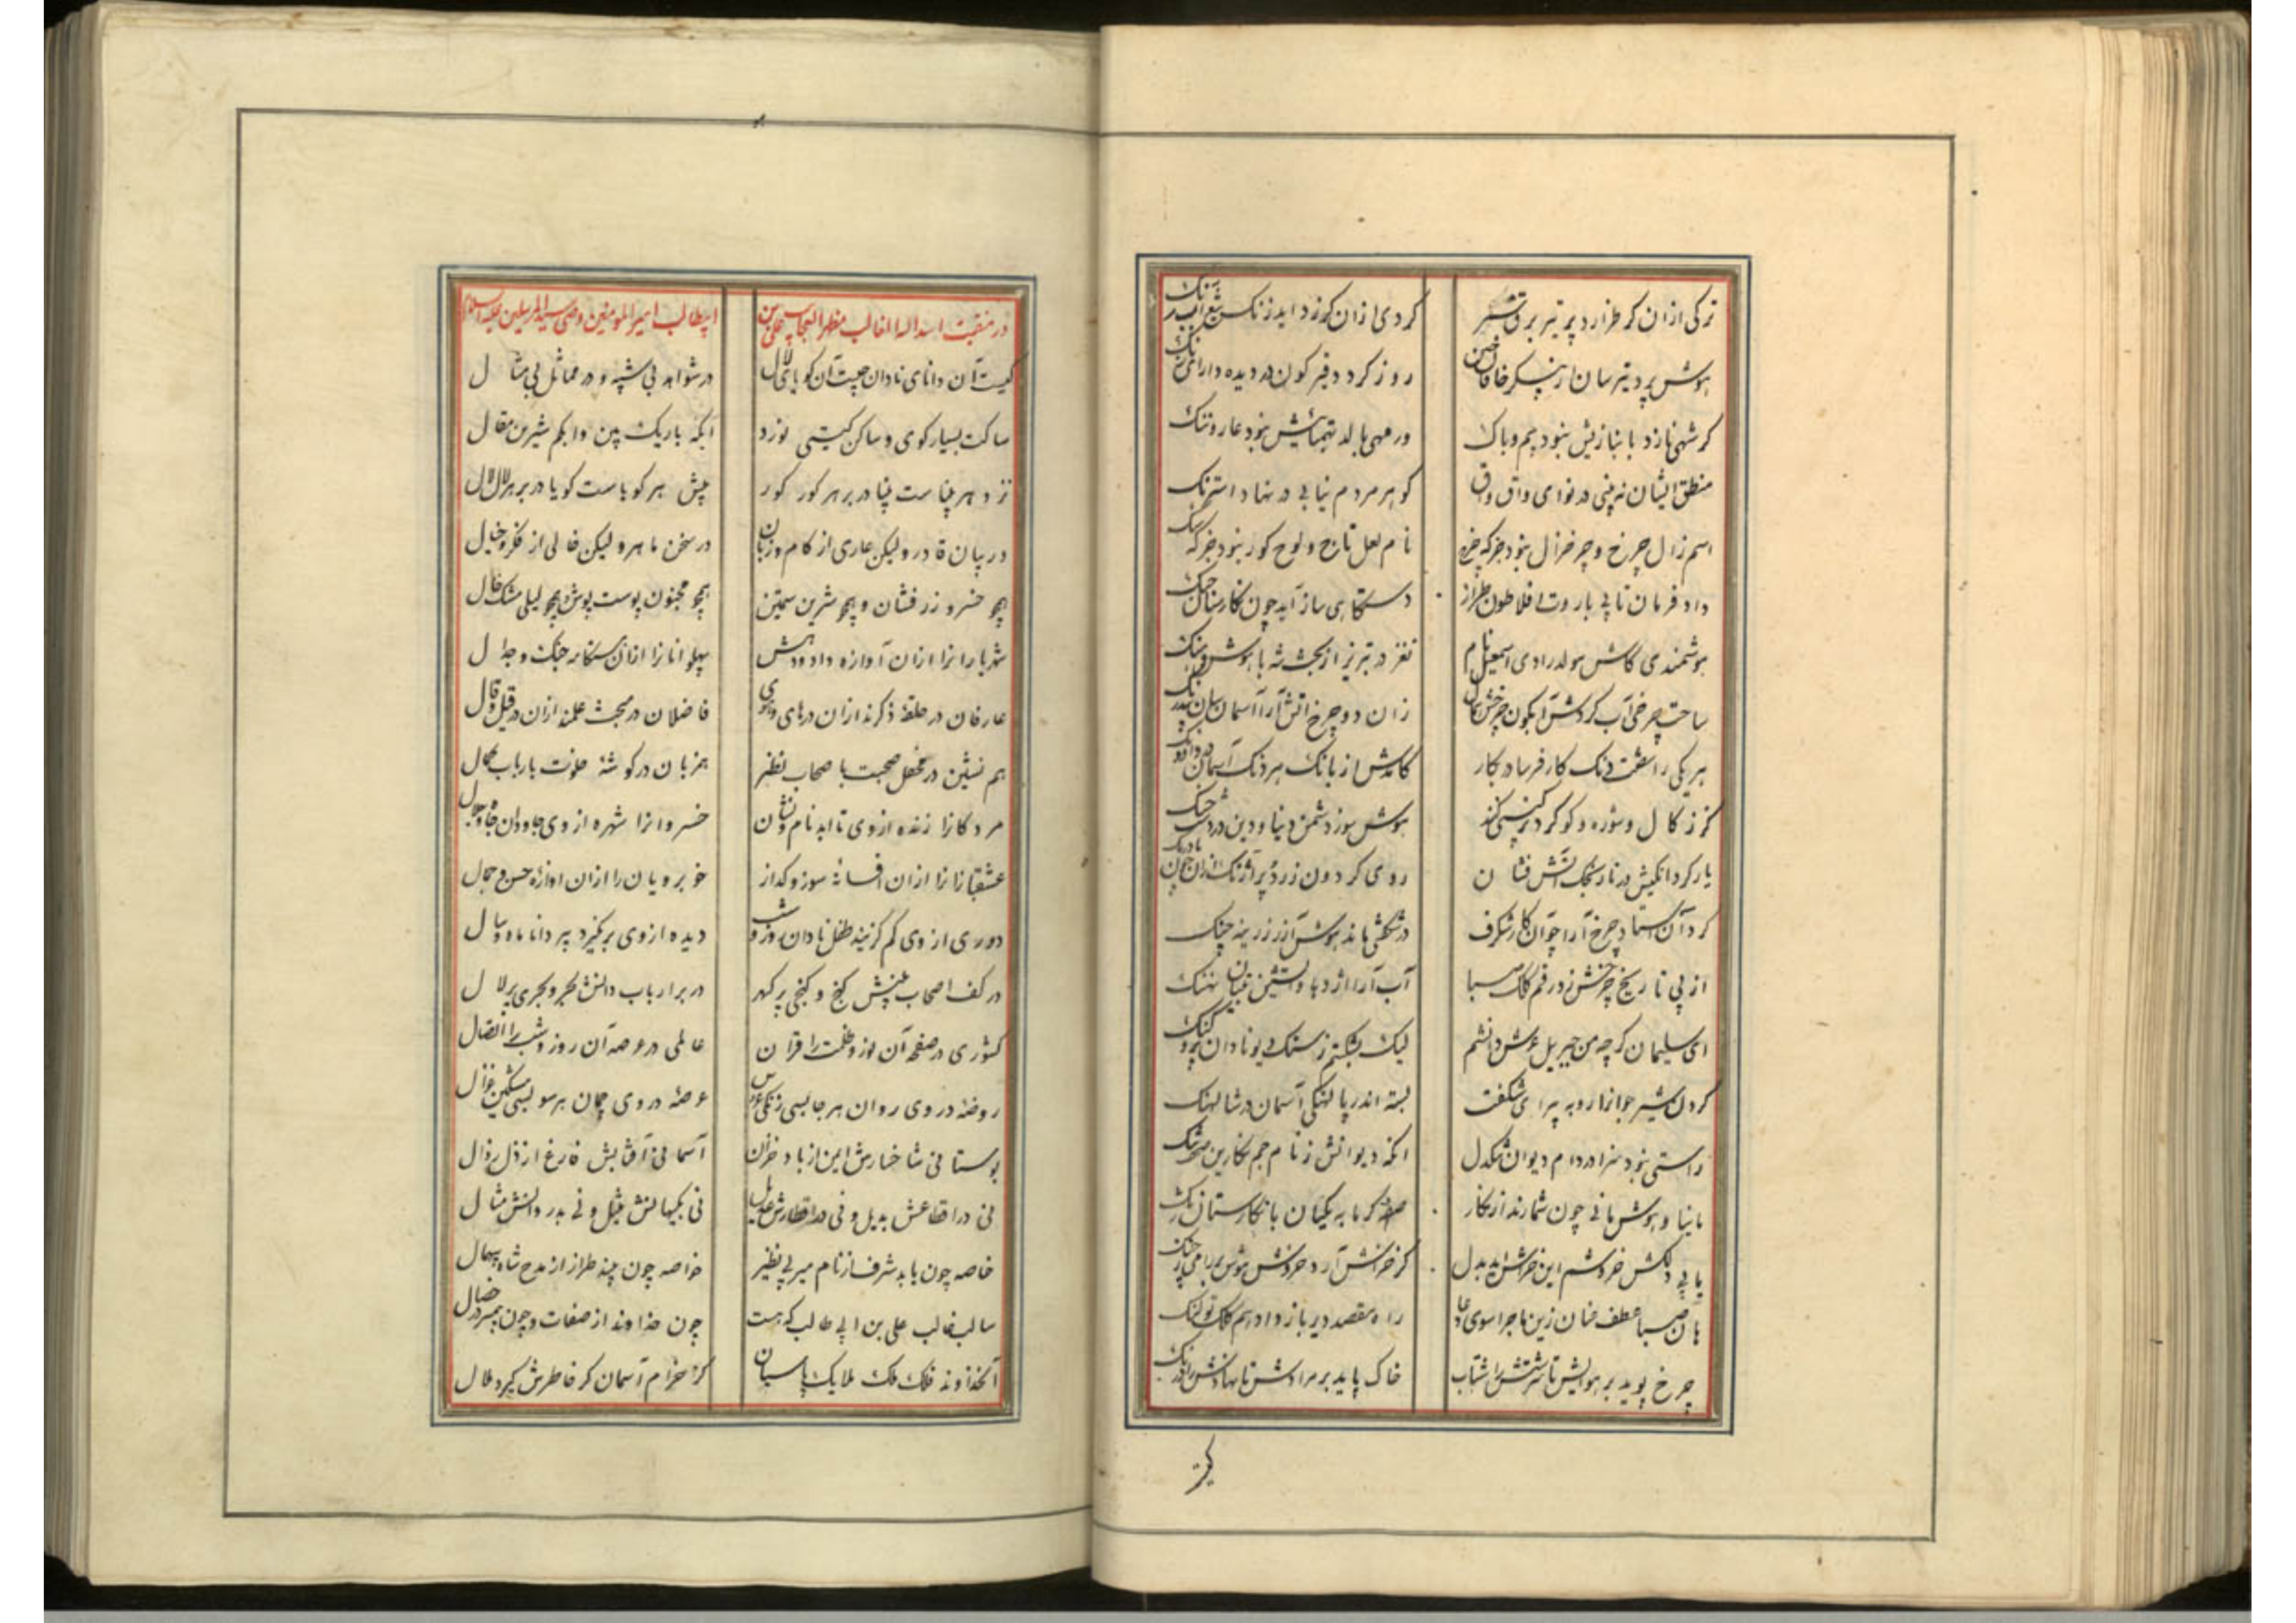 ترکی ازان کر طرازد پر تیر برق
کردی ازان کرزد اید زنک
هوش پرد تیرسان از پیکر خاقان چین
روز کردد قیرکون در دیده دارای زنک
کر شهی نازد با نبازیش نبود بیم و باک
ور مهی بالد بهمتائیش نبود عار و ننک
منطق ایشان نه بینی در نوای واق واق
کوهر مردم نیابی در نهاد استرنک
اسم زال چرخ و چرخ زال نبود جز که چرخ
نام لعل تاج و لوح کور نبود جز که سنک
داد فرمان تا پی باروت افلاطون طراز
دستکاهی ساز آید چون نکارستان چنک
هوشمندی کاش مولد رادی اسمعیل نام
نغز در تبریز از بخت شه با هوش و هنک
ساخت چرخی آب کردش آبکون چرخش مثال
زان دو چرخ آتش آرا آسمان سان
هر یکی را هفت دنک کارفرسا در کار
کامدش از بانک هر دنک آسمان
کز زکال و شوره و کوکرد کیتی کند
هوش سوز دشمن دنیا و دین در دشت جنک
یار کرد انکیش در نارنجک آتش فشان
روی کردون زرد و پر آژنک ازان چون بادرنک
کرد آن استاد چرخ آرا چو آن کار شکرف
در شکفتی ماند هوش آزر زرینه چنک
از پی تاریخ چرخش زد رقم کلک صبا
آب آرا اژدها و آتشین ثعبان نهنک
ای سلیمان کر چه من جبریل عرش دانشم
لیک بشکستم ز سنک دیو نادان
کردن شیر جوازا روبه پیرای شکفت
بسته اندر پالهنکی آسمان در شالهنک
راستی نبود سزا در دام دیوان سنکدل
انکه دیوانش ز نام جم نکارین
با بینا و هوش مانی چون شمارند از نکار
صفه کرمابه یکسان با نکارستان کنک
با پی دلکش خروشم این خراش بد بدل
کز خراشش آرد خروش
هان صبا عطف عنان زین ماجرا سوی دعا
راه مقصد دیر باز و ادهم کلک تو لنک
چرخ پوید بر هوایش تا سرشتش را شتاب
خاک پاید بر مرادش تا نهادش را درنک
کیست
در منقبت اسد الله الغالب مظهر العجایب علی بن
ابیطالب امیر المومنین وصی سید المرسلین علیه السلام
کیست آن دانای نادان چیست آن کویای لال
در شواهد بی شبیه و در مماثل بی مثال
ساکت بسیار کوی و ساکن کیتی نورد
ابکه باریک بین و ابکم شیرین مقال
نزد هر بیناست بینا در بر هر کور کور
پیش هر کویاست کویا در بر هر لال لال
در بیان قادر ولیکن عاری از کام و زبان
در سخن ماهر ولیکن خالی از فکر و خیال
همچو خسرو زرفشان و همچو شیرین سیمتن
همچو مجنون پوست پوش و همچو لیلی مشک خال
شهریارانرا ازان آوازه داد و دهش
پهلوانانرا ازان هنکامه جنک و جدال
عارفان در حلقه ذکرند ازان درهای و هوی
فاضلان در مبحث علمند ازان در قیل و قال
هم نشین در محفل صحبت با صحاب نظر
همزبان در کوشه خلوت بارباب کمال
مردکانرا زنده از وی تا ابد نام و نشان
خسروانرا شهره از وی جاودان جاه و جلال
عشقبازانرا ازان افسانه سوز و کداز
خوبرویان را ازان اوازه حسن و جمال
دوری از وی کم کزیند طفل نادان روز و شب
دیده از وی بر نکیرد پیر دانا ماه و سال
در کف اصحاب بینش کنج و کنجی پر کهر
در بر ارباب دانش بحر و بحری پر لآل
کشوری در صفحه آن نور و ظلمت را قران
عالمی در عرصه آن روز و شب را اتصال
روضه در وی روان هر جا بسی زنکی عروس
عرصه در وی چمان هر سو بسی مشکین غزال
بوستانی شاخسارش ایمن از باد خزان
آسمانی آفتابش فارغ از ذل زوال
نی در اقطاعش بدیل و نی در اقطارش عدیل
نی بکیهانش مثیل و نی بدر دانش مثال
خاصه چون یابد شرف از نام میر بی نظیر
خواصه چون بیند طراز از مدح شاه بیهمال
سالب غالب علی بن ابی طالب که هست
چون خداوند از صفات و چون پیمبر در خصال
آنخداوند فلک ملک ملایک پاسبان
کز خرام آسمان کر خاطرش کیرد ملال